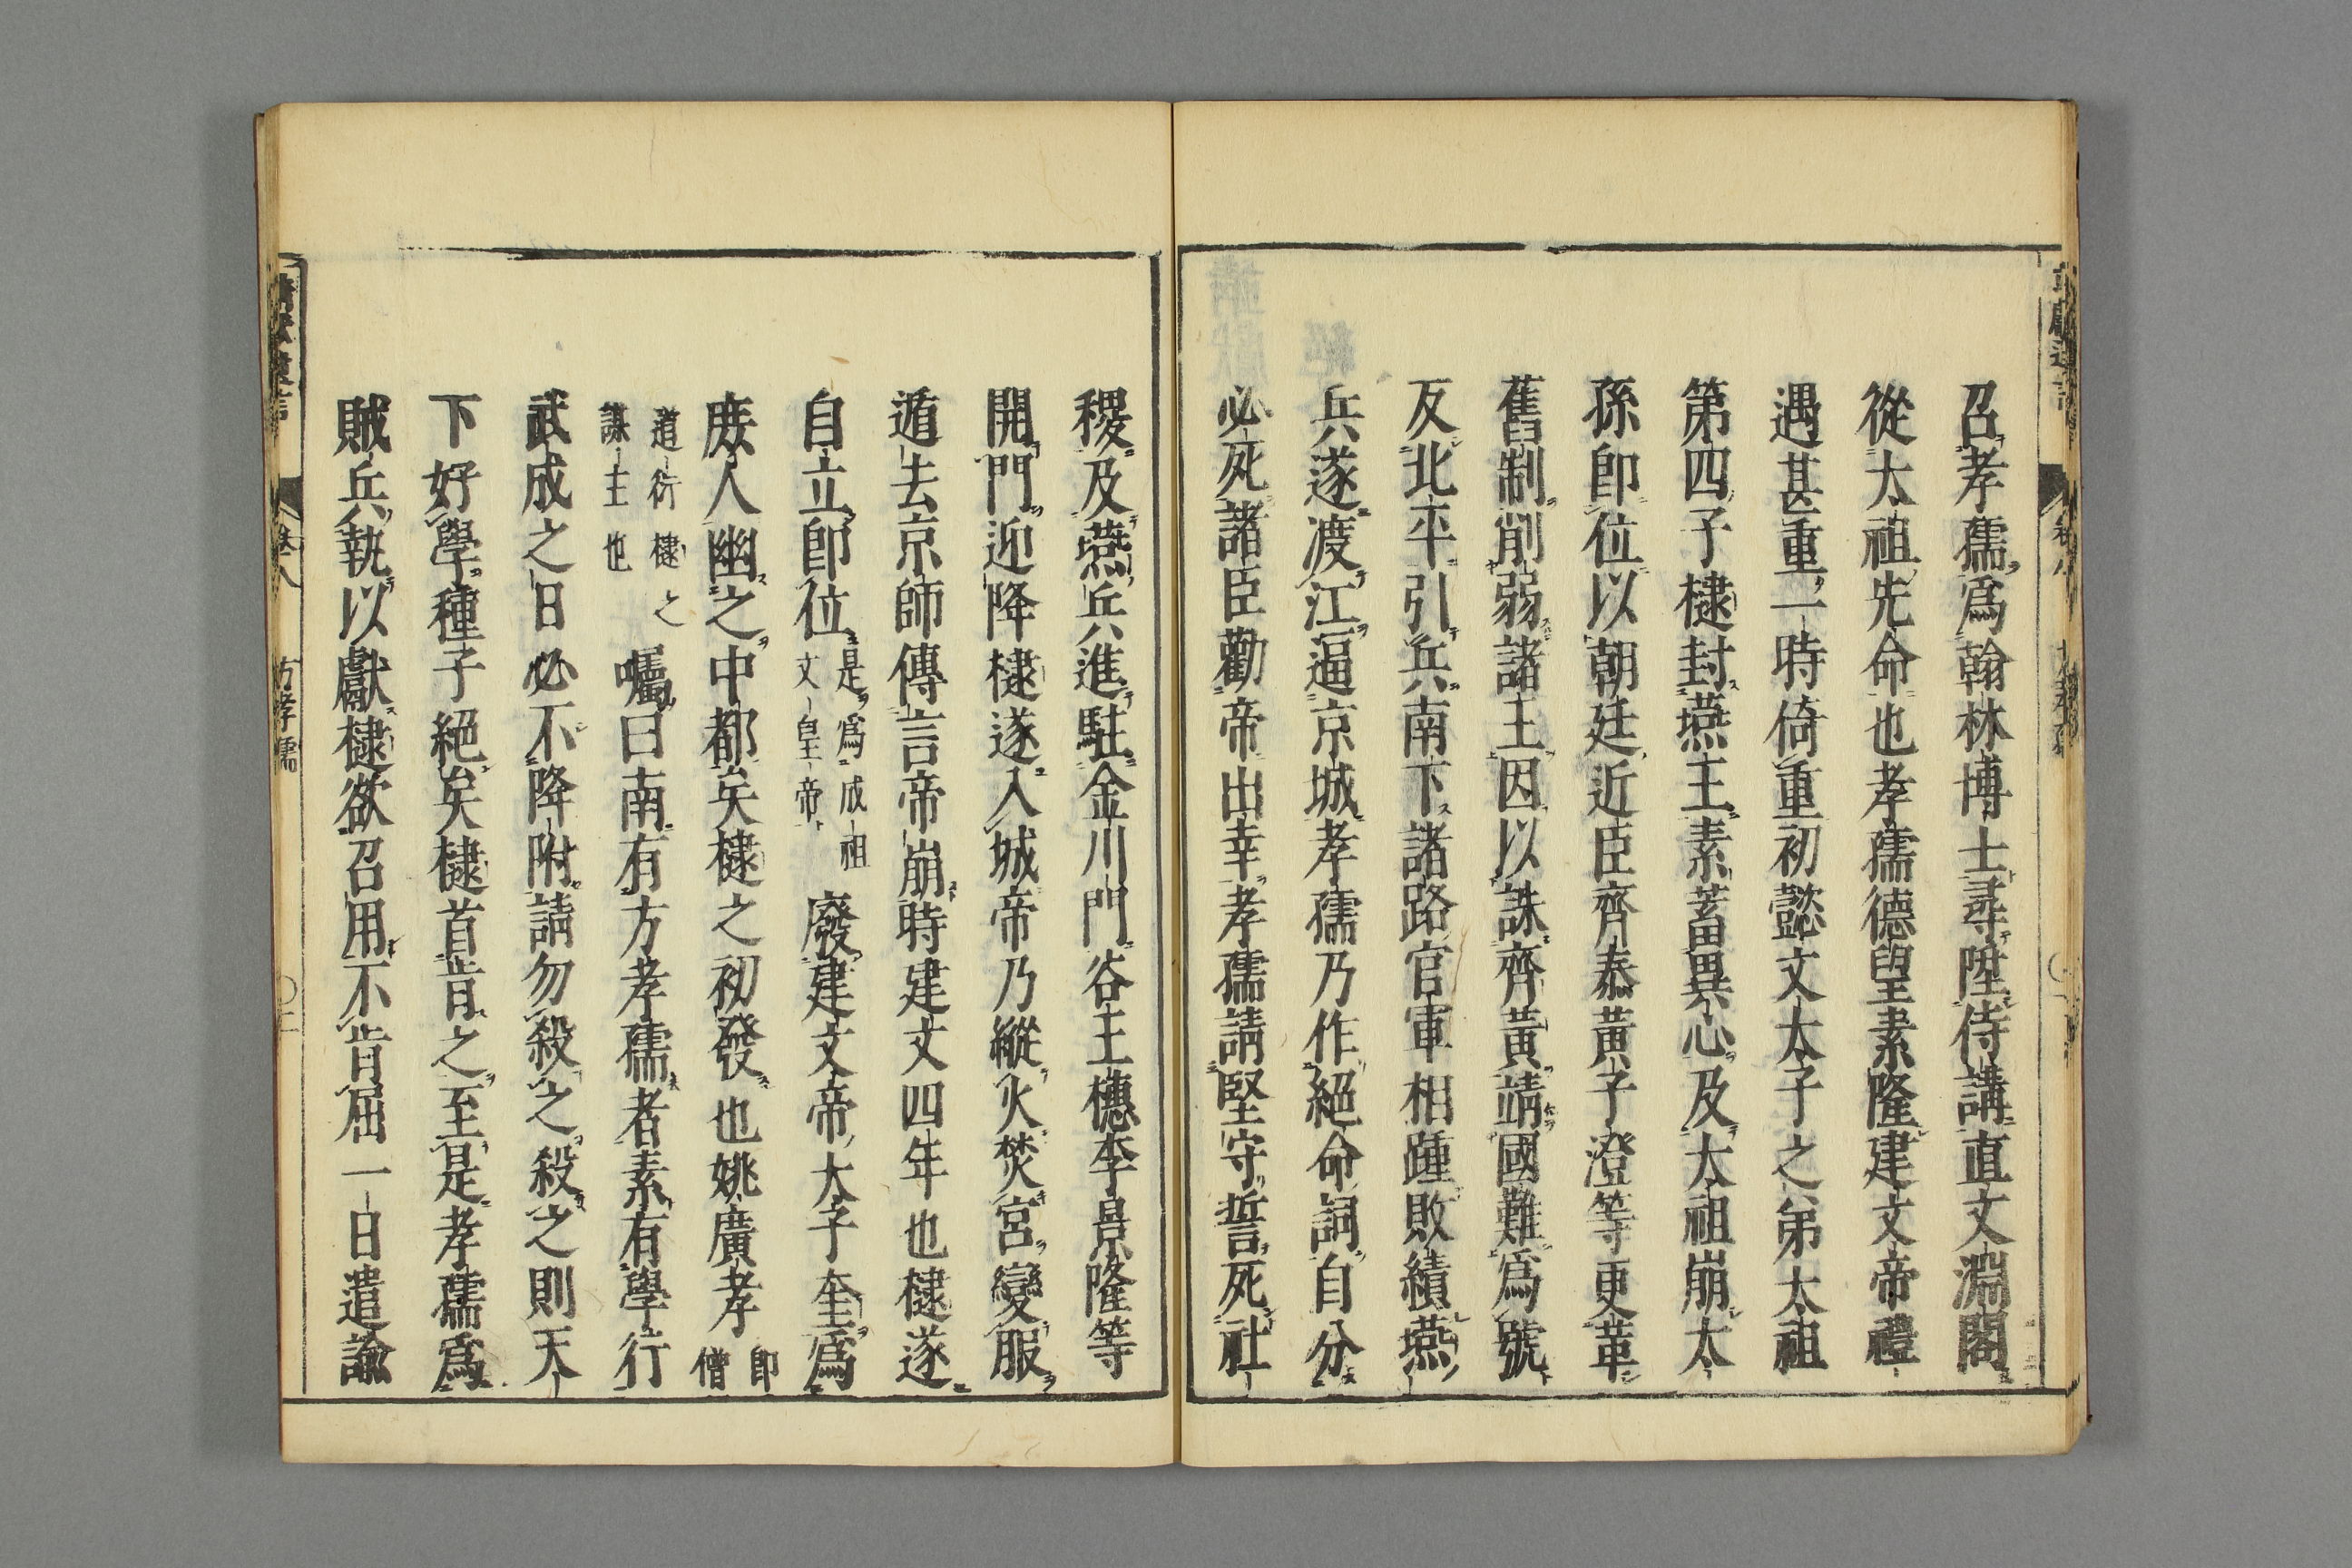 召孝孺爲翰林博士尋陞侍講直文淵閣
從太祖先命也孝孺德望素隆建文帝禮
遇甚重一時倚重初懿文太子之弟太祖
第四子棣封燕王素蓄異心及太祖崩太
孫卽位以朝廷近臣齊泰黃子澄等更革
舊制削弱諸王因以誅齊黃靖國難爲號
反北平引兵南下諸路官軍相踵敗績燕
兵遂渡江逼京城孝孺乃作絕命詞自分
必死諸臣勸帝出幸孝孺請堅守誓死社
稷及燕兵進駐金川門谷王橞李景隆等
開門迎降棣遂入城帝乃縱火焚宮變服
遁去京師傳言帝崩時建文四年也棣遂
自立卽位是爲成祖文皇帝廢建文帝太子奎爲
庶人幽之中都矣棣之初發也姚廣孝卽僧
道衍棣之謀主也囑曰南有方孝孺者素有學行
武成之日必不降附請勿殺之殺之則天
下好學種子絕矣棣首肯之至是孝孺爲
賊兵執以獻棣欲召用不肯屈一日遣諭
卷八 方孝孺